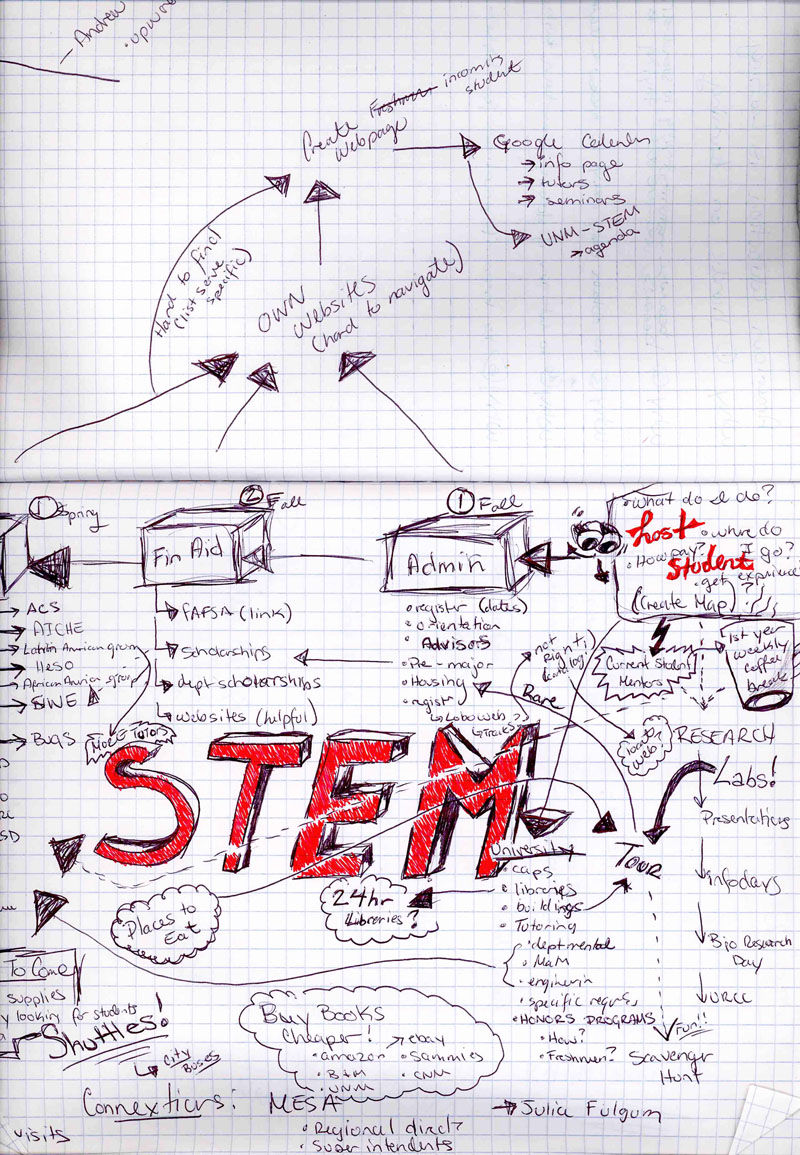 - Andrew
Create Freshman incoming
Webpage student
Google Calender
→ info page
→ tutors
→ seminars
UNM-STEM
→ agenda
Hard to find
(list serve
specific)
OWN
Websites
(hard to navigate)
① Spring
② Fall
① Fall
Fin Aid
Admin
•What do I do?
Lost
Student
•where do
I go?
•How pay?
•get experience
?
(Create Map)
→ ACS
→ AICHE
→ HESO
→ SWE
→ BUGS
→ FAFSA (link)
→ scholarships
→ dept scholarships
→ websites (helpful)
More Tutors
•register (dates)
•orientation
•Advisors
•Pre-major
•Housing
•register
↳ Loboweb
not
Right
Rare
Current Student
Mentors
1st year
weekly
coffee
break
RESEARCH
Labs!
Presentations
infodays
Bio Research
Day
URCC
STEM
Tour
Fun!!
Scavengr
Hunt
University
•caps
•libreries
•buildings
•Tutoring
•deptmental
•MaM
•engineerin
•specific reqrs,
•HONORS PROGRAMS
•How?
•Freshmen?
Places to
Eat
24hr
Libreries?
To Come
supplies
y looking for students
Shuttles!
↳ City
Buses
Buy Books
Cheaper!
→ ebay
•amazon
•Sammies
•B+M
•CNM
•UNM
Connexticns: MESA
•Regional direct
•Super intendents
→ Julia Fulgum
visits